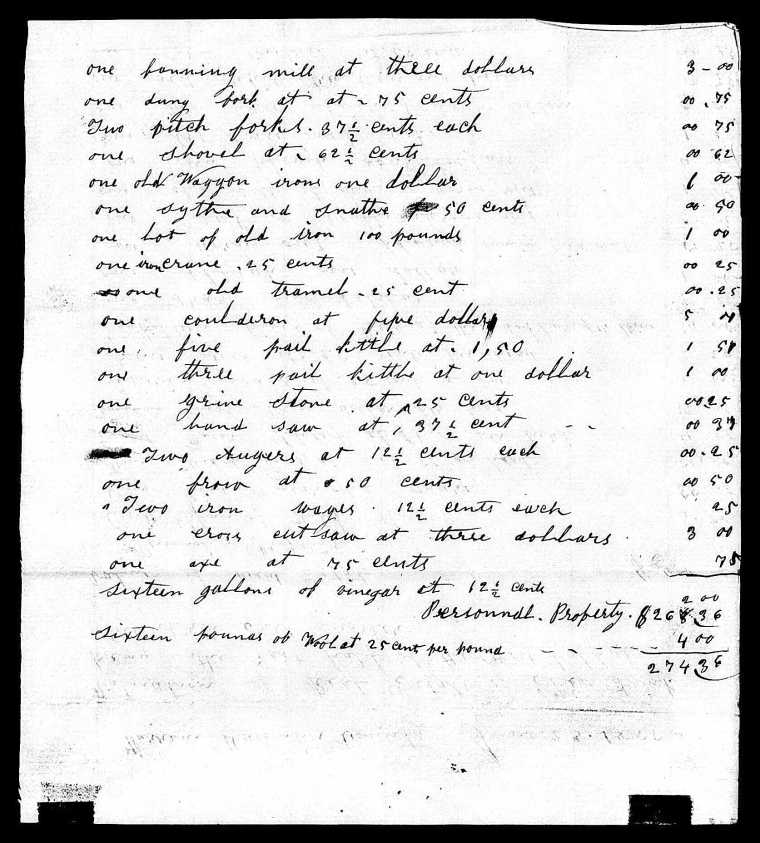 one fanning mill at three dollars 3 - 00
one dung fork at at - 75 cents 00 . 75
Two pitch forks . 37 1/2 cents each 00 75
one shovel at 62 1/2 cents 00 62
one old Waggon irons one dollar 1 00
one sythe and snathe 50 cents 00 50
one lot of old iron 100 pounds 1 00
one iron crane . 25 cents 00 25
one old tramel - 25 cent 00 . 25
one coulderon at five dollars 5
one five pail kittle at . 1,50 1 50
one three pail kittle at one dollar 1 00
one grine stone at 25 cents 00 25
one hand saw at 37 1/2 cent - - 00 37
Two Augers at 12 1/2 cents each 00 . 25
one frow at 50 cents 00 50
Two iron wages . 12 1/2 cents each 25
one cross cut saw at three dollars . 3 00
one axe at 75 cents 75
Sixteen gallons of vinegar at 12 1/2 cents 2 00
Personnal . Property . $ 268 36
Sixteen pounds of Wool at 25 cent per pound - - - - - 4 00
274 36